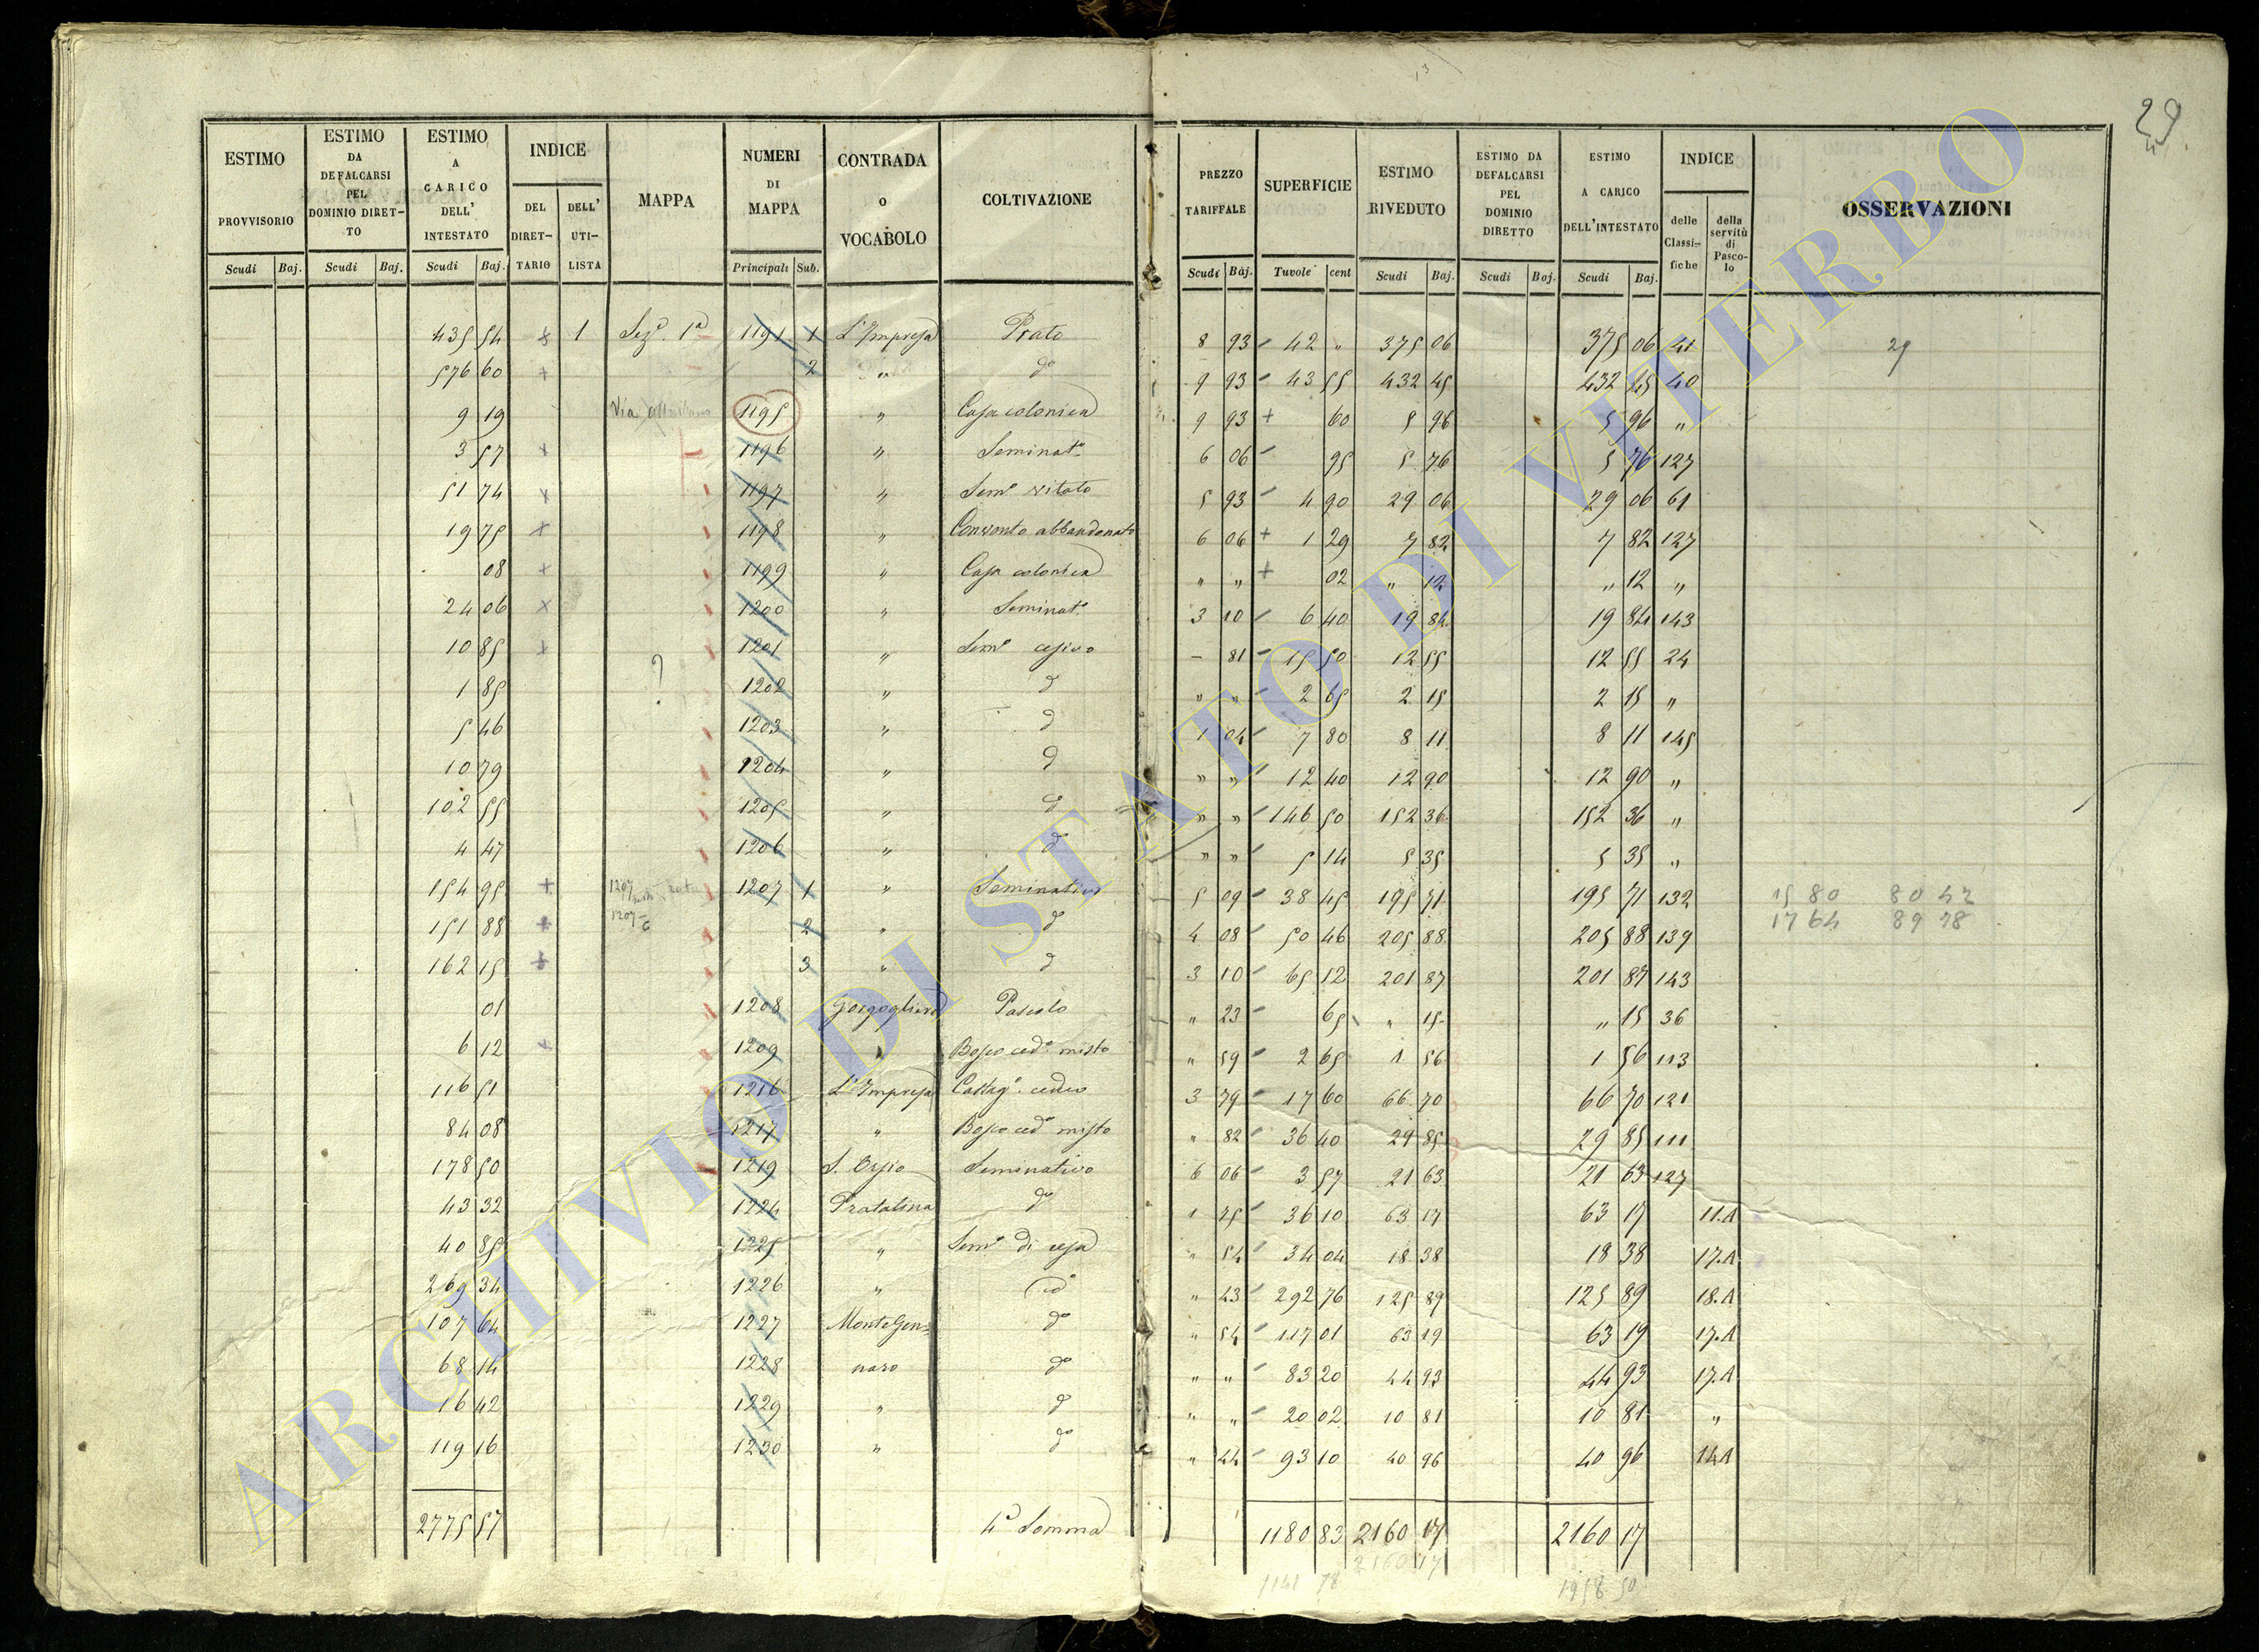 29
ESTIMO PROVVISORIO Scudi Baj.
ESTIMO DA DEFALCARSI PEL DOMINIO DIRETTO Scudi Baj.
ESTIMO A CARICO DELL' INTESTATO Scudi Baj.
INDICE DEL DIRETTARIO DELL' UTILISTA
MAPPA
NUMERI DI MAPPA Principali Sub.
CONTRADA O VOCABOLO
COLTIVAZIONE
PREZZO TARIFFALE Scudi Baj.
SUPERFICIE Tavole cent
ESTIMO RIVEDUTO Scudi Baj.
ESTIMO DA DEFALCARSI PEL DOMINIO DIRETTO Scudi Baj.
ESTIMO A CARICO DELL'INTESTATO Scudi Baj.
INDICE delle Classifiche della servitù di Pascolo
OSSERVAZIONI
435 54 x 1 Sez. 1a 1191 1 L'Impresa Prato 8 93 - 42 " 375 06 375 06 41 29
576 60 + 2 " do 9 93 - 43 55 432 45 432 45 40
9 19 Via 1195 " Casa colonica 9 93 + 60 5 96 5 96 "
3 57 + 1196 " Seminato 6 06 - 95 5 76 5 76 127
51 74 x 1197 " Semo vitato 5 93 - 4 90 29 06 29 06 61
19 75 x 1198 " Convento abbandonato 6 06 + 1 29 7 82 7 82 127
08 + 1199 " Casa colonica " " + 02 " 12 " 12 "
24 06 x 1200 " Seminato 3 10 - 6 40 19 84 19 84 143
10 85 x 1201 " Semo cesivo - 81 - 15 50 12 55 12 55 24
?
1 85 1202 " d " " - 2 65 2 15 2 15 "
5 46 1203 " d 1 04 - 7 80 8 11 8 11 145
10 79 1204 " d " " - 12 40 12 90 12 90 "
102 55 1205 " d " " - 146 50 152 36 152 36 "
4 47 1206 " d " " - 5 14 5 35 5 35 "
154 95 + 1207 1207 1 " Seminativo 5 09 - 38 45 195 71 195 71 132 15 80 80 42
151 88 + 1207 2 " d 4 08 - 50 46 205 88 205 88 139 17 64 89 78
162 15 + 3 " d 3 10 - 65 12 201 87 201 87 143
01 1208 Pascolo " 23 65 " 15 " 15 36
6 12 + 1209 " Bosco cedo misto " 59 - 2 65 1 56 1 56 113
116 51 1216 L'Impresa Castago ceduo 3 79 - 17 60 66 70 66 70 121
84 08 1217 " Bosco cedo misto " 82 - 36 40 29 85 29 85 111
178 50 1219 Seminativo 6 06 - 3 57 21 63 21 63 127
43 32 1224 Pratalina do 1 75 - 36 10 63 17 63 17 11.A
40 85 1225 " Semo di cesa " 54 - 34 04 18 38 18 38 17.A
269 34 1226 " ido " 43 - 292 76 125 89 125 89 18.A
107 64 1227 Monte Gen= do " 54 - 117 01 63 19 63 19 17.A
68 14 1228 naro do " " - 83 20 44 93 44 93 17.A
16 42 1229 " do " " - 20 02 10 81 10 81 "
119 16 1230 " do " 44 - 93 10 40 96 40 96 14A
2775 57 4a Somma 1180 83 2160 17 2160 17
2160 17
1141 78 1958 50
ARCHIVIO DI STATO DI VITERBO